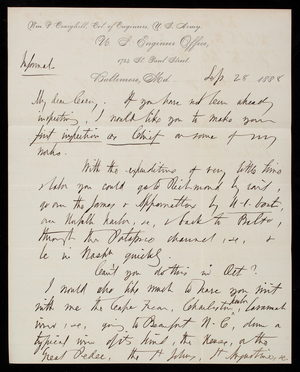 Wm P. Craighill, Col. of Engineers, U. S. Army.
U. S. Engineer Office,
1734 St. Paul Street.
Informal
Baltimore, Md. Sep. 28 1888
My dear Casey: If you have not been already
inspecting, I would like you to make your
first inspection as Chief on some of my
works.
With the expenditure of very little time
& labor you could go to Richmond by rail,
go over the James & Appomattox by U. S. boat,
over Norfolk harbor, &c, & back to Balto,
through the Patapsco channel, &c, &
be in Washn quickly
Can't you do this in Oct?
I would also like much to have you visit
with me the Cape Fear, Charleston, Savannah
&c, going to Beaufort N. C, down a
typical river of its kind, the Neuse, or the
Great Pedee, the St Johns, St Augustine, &c